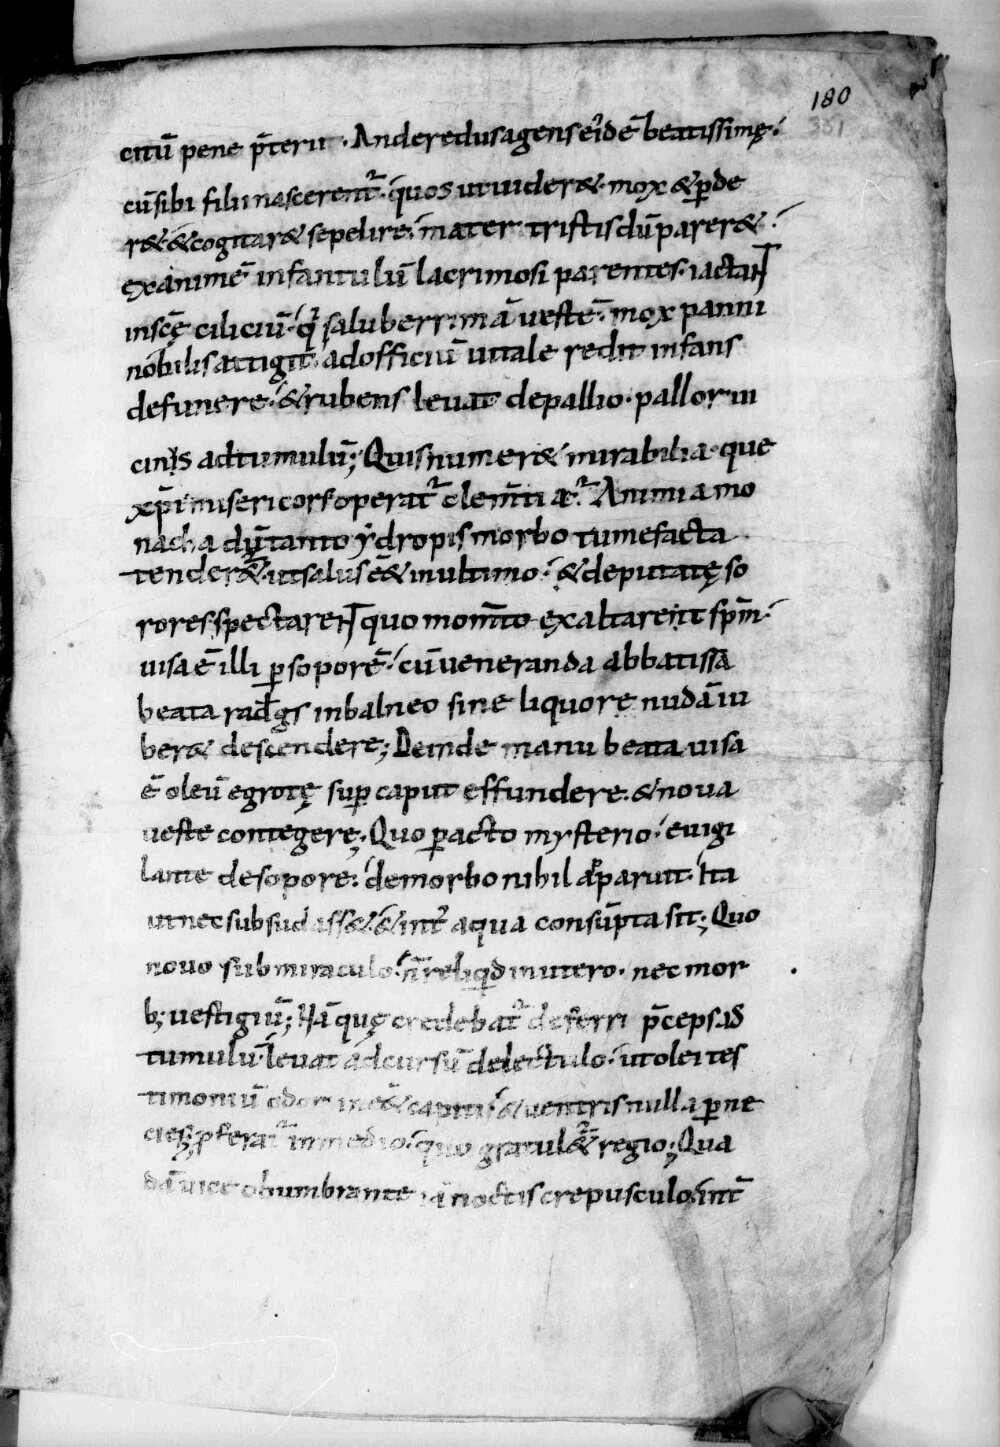 180
351
citū pene p̄teriit · Anderedus agens eidē beatissimę ·
cū sibi filii nascerent᷑ · quos ut uider& · mox & ꝑde
r& · & cogitar& sepelire · mater tristis dū parer&
exanimē infantulū lacrimosi parentes · iactant
in scę ciliciū · q̄ saluberrimā uestē · mox panni
nobilis attigit · ad officiū uitale redit infans
de funere · & rubens leuat de pallio · pallor in
cinis ad tumulū; Quis numer& mirabilia · que
xp̄i misericors operat᷑ clem̄tia᷑ · Animia mo
nacha dū tanto ydropis morbo tumefacta
tender& · ut salus c̄& in ultimo · & deputatę so
rores spectarent quo mom̄to exaltarent spm̄ ·
uisa ē illi ꝑ soporē · cū ueneranda abbatissa
beata radegs in balneo sine liquore nudā iu
ber& descendere; Deinde manu beata uisa
ē oleū egrotę suꝑ caput effundere · & noua
ueste contegere; Quo ꝑacto mysterio · euigi
lante de sopore · de morbo nihil apparuit · Ita
ut nec subsudass& · & int᷑ aqua consūpta sit; Quo
nouo sub miraculo · n̄ reliquid in utero · nec mor
b; uestigiū; Nā quę credebat᷑ deferri p̄ceps ad
tumulū · leuat ad cursū de lectulo · ut olei tes
timoniū odor in ē& capiti · & uentris nulla ꝑne
cies; ꝓferat᷑ in medio · quo gratul&᷑ regio; Qua
dā uice obumbrante iā noctis crepusculo · int᷑